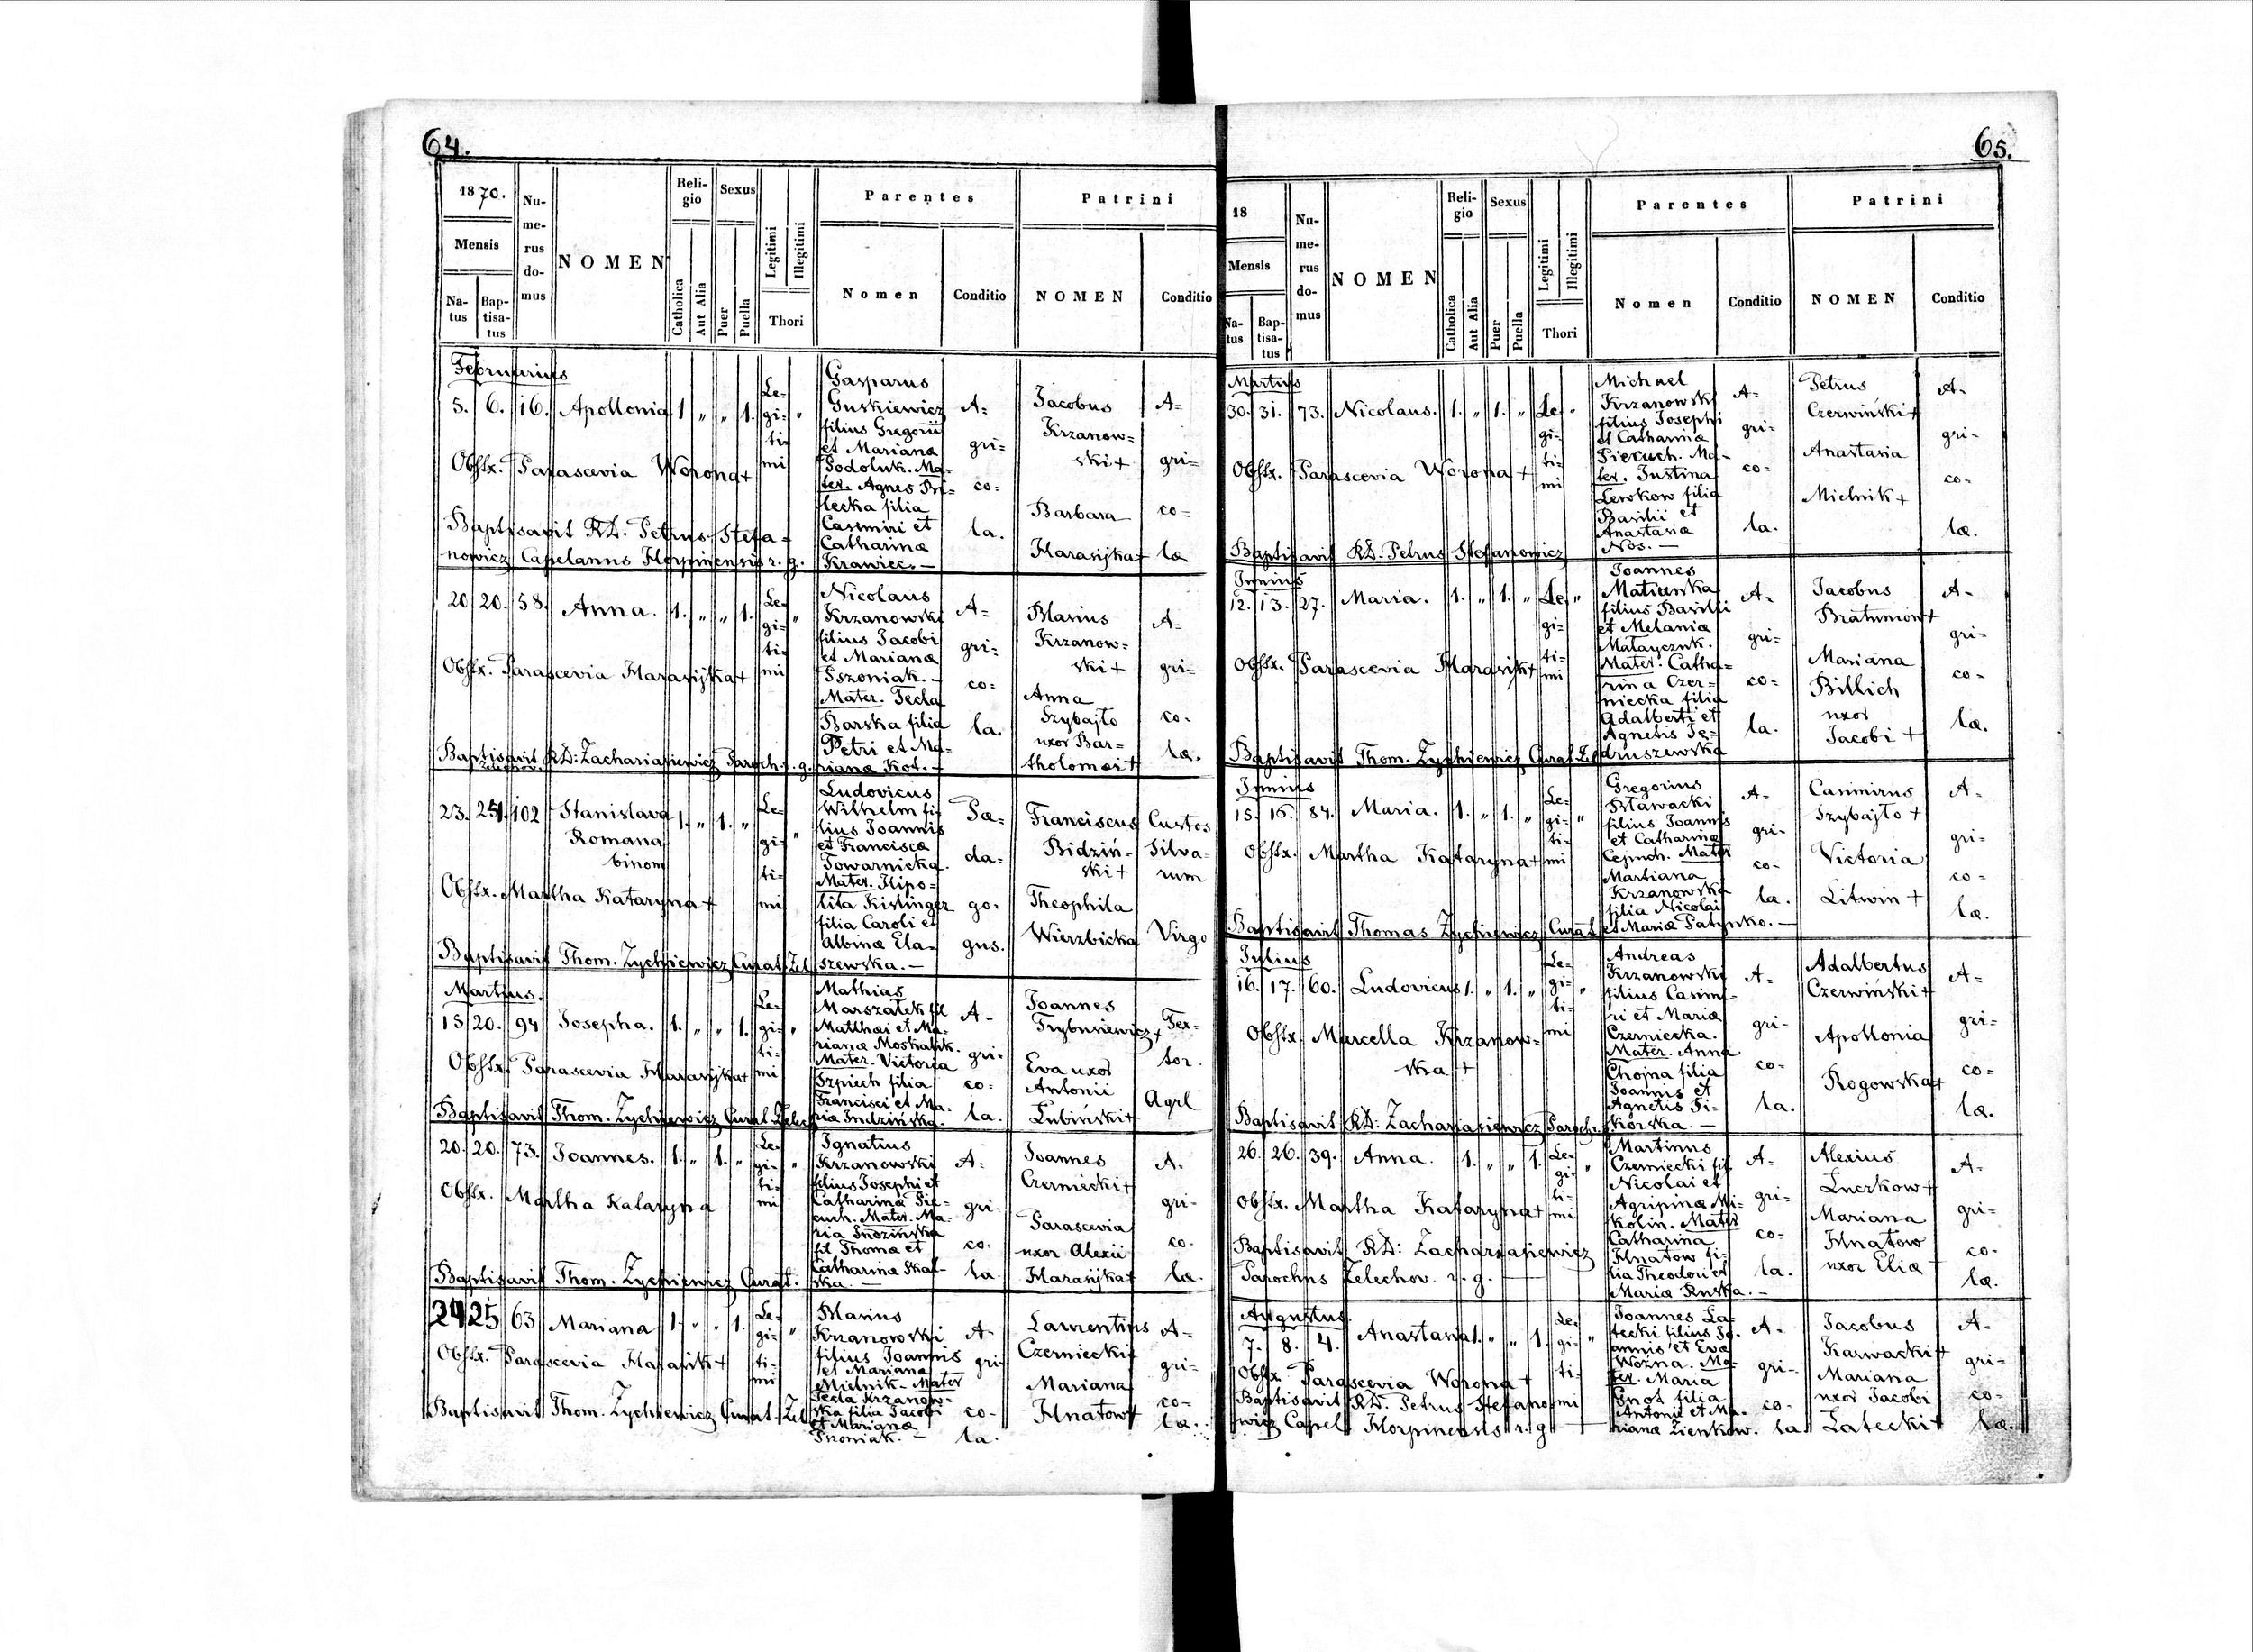 64.
1870.
Mensis
Na-
tus
Bap-
tisa-
tus
Nu-
me-
rus
do-
mus
NOMEN
Reli-
gio
Catholica
Aut Alia
Sexus
Puer
Puella
Legitimi
Illegitimi
Thori
Parentes
Nomen
Conditio
Patrini
NOMEN
Conditio
Februarius
5. 6. 16. Apollonia 1 " " 1. Le=
gi=
ti=
mi "
Gasparus
Guskiewicz
filius Gregorii
et Mariana
Podoluk. Ma-
ter. Agnes Bi-
lecka filia
Casimiri et
Catharina
Krawiec. —
A=
gri=
co=
la.
Jacobus
Krzanow=
ski +
Barbara
Harasijka +
A=
gri=
co=
læ
Obstx. Parascevia Worona +
Baptisavit RD. Petrus Stefa=
nowicz Capelanus Horpinensis r. g.
20 20. 58. Anna. 1. " " 1. Le=
gi=
ti=
mi "
Nicolaus
Krzanowski
filius Jacobi
et Mariana
Pszoniak. -
Mater. Tecla
Barska filia
Petri et Ma-
riana Kot. —
A=
gri=
co=
la.
Blasius
Krzanow=
ski +
Anna
Szybajło
uxor Bar=
tholomæi +
A=
gri=
co=
læ.
Obstx. Parascevia Harasijka +
Baptisavit RD: Zachariasiewicz Paroch. r. g.
23. 102 Stanislava
Romana
binom 1. " 1. " Le=
gi=
ti=
mi "
Ludovicus
Wilhelm fi-
lius Joannis
et Francisca
Towarnicka.
Mater. Hipo=
lita Kislinger
filia Caroli et
Albinæ Ela-
szewska. —
Pæ=
da=
go=
gus.
Franciscus
Bidziń-
ski +
Theophila
Wierzbicka
Custos
Silva=
rum
Virgo
Obstx. Martha Kataryna +
Baptisavit Thom. Zychiewicz Curat. Żel
Martius.
15 20. 94 Josepha. 1. " " 1. Le=
gi=
ti=
mi "
Mathias
Marszałek fil
Matthæi et Ma-
riana Moskaluk.
Mater. Victoria
Szpiech filia
Francisci et Ma-
ria Indzińska.
A-
gri=
co=
la.
Joannes
Trybusiewicz +
Eva uxor
Antonii
Łubiński +
Tex-
tor.
Agrl
Obstx. Parascevia Harasijka +
Baptisavit Thom. Zychiewicz Curat. Zelec
20. 20. 73. Joannes. 1. " 1. " Le=
gi=
ti=
mi "
Ignatius
Krzanowski
filius Josephi et
Catharina Pie-
cuch. Mater. Ma-
ria
fil Thomæ et
Catharina Skal-
ska. —
A=
gri-
co-
la
Joannes
Czerniecki +
Parascevia
uxor Alexii
Harasijka +
A-
gri-
co-
læ.
Obstx. Martha Kataryna
Baptisavit Thom. Zychiewicz Curat.
24 25 63 Mariana 1. " . 1. Le=
gi=
ti=
mi "
Blasius
Krzanowski
filius Joannis
et Mariana
Mielnik. Mater
Tecla Krzanow-
ska filia Jacobi
et Mariana
Pszoniak. —
A-
gri
co-
la.
Laurentius
Czerniecki +
Mariana
Hnatow +
A-
gri-
co-
læ.
Obstx. Parascevia Harasik +
Baptisavit Thom. Zychiewicz Curat. Żel
65.
18
Mensis
Na-
tus
Bap-
tisa-
tus
Nu-
me-
rus
do-
mus
NOMEN
Reli-
gio
Catholica
Aut Alia
Sexus
Puer
Puella
Legitimi
Illegitimi
Thori
Parentes
Nomen
Conditio
Patrini
NOMEN
Conditio
Martius
30. 31. 73. Nicolaus. 1. " 1. " Le
gi=
ti=
mi "
Michael
Krzanowski
filius Josephi
et Catharina
Piecuch. Ma-
ter. Justina
Lewkow filia
Basilii et
Anastasia
Nos. —
A-
gri-
co-
la.
Petrus
Czerwiński +
Anastasia
Mielnik +
A-
gri-
co-
læ.
Obstx. Parascevia Worona +
Baptisavit RD. Petrus Stefanowicz
Junius
12. 13. 27. Maria. 1. " 1. " Le
gi=
ti=
mi "
Joannes
filius Basilii
et Melania
Matayczuk.
Mater. Catha=
rina Czer-
niecka filia
Adalberti et
Agnetis Ję-
druszewska
A-
gri-
co-
la.
Jacobus
Bratuniow +
Mariana
Billich
uxor
Jacobi +
A-
gri-
co-
læ.
Obstx. Parascevia Harasijk +
Baptisavit Thom. Zychiewicz Curat. Żel
Junius
15. 16. 84. Maria. 1. " 1. " Le=
gi=
ti=
mi "
Gregorius
Sławacki
filius Joannis
et Catharina
Cepuch. Mater
Martiana
Krzanowska
filia Nicolai
et Maria Patynko. —
A-
gri-
co-
la.
Casimirus
Szybajło +
Victoria
Litwin +
A-
gri-
co-
læ.
Obstx. Martha Kataryna +
Baptisavit Thomas Zychiewicz Curat.
Julius
16. 17. 60. Ludovicus 1. " 1. " Le-
gi-
ti-
mi "
Andreas
Krzanowski
filius Casimi-
ri et Maria
Czerniecka.
Mater. Anna
Chojna filia
Joannis et
Agnetis Si-
korska. —
A-
gri-
co-
la.
Adalbertus
Czerwiński +
Apollonia
Rogowska +
A-
gri=
co=
læ.
Obstx. Marcella Krzanow=
ska +
Baptisavit RD: Zachariasiewicz Paroch.
26. 26. 39. Anna. 1. " " 1. Le-
gi-
ti-
mi "
Martinus
Czerniecki fil
Nicolai et
Agripinæ Mi-
kolin. Mater
Catharina
Hnatow fi-
lia Theodori et
Maria Ruska. -
A-
gri-
co-
la.
Alexius
Luczkow +
Mariana
Hnatow
uxor Eliæ +
A-
gri-
co-
læ.
Obstx. Martha Kataryna +
Baptisavit RD: Zachariasiewicz
Parochus Żelechov. r. g. —
Augustus.
7. 8. 4. Anastasia 1. " " 1. Le-
gi-
ti-
mi "
Joannes La-
tecki filius Jo-
annis et Eva
Wożna. Ma-
ter. Maria
Gnot filia
Antonii et Ma-
riana Zienkow.
A-
gri-
co-
la.
Jacobus
Karwacki +
Mariana
uxor Jacobi
Latecki +
A-
gri-
co-
læ.
Obstx. Parascevia Worona +
Baptisavit RD. Petrus Stefano-
wicz Capel Horpinensis r. g